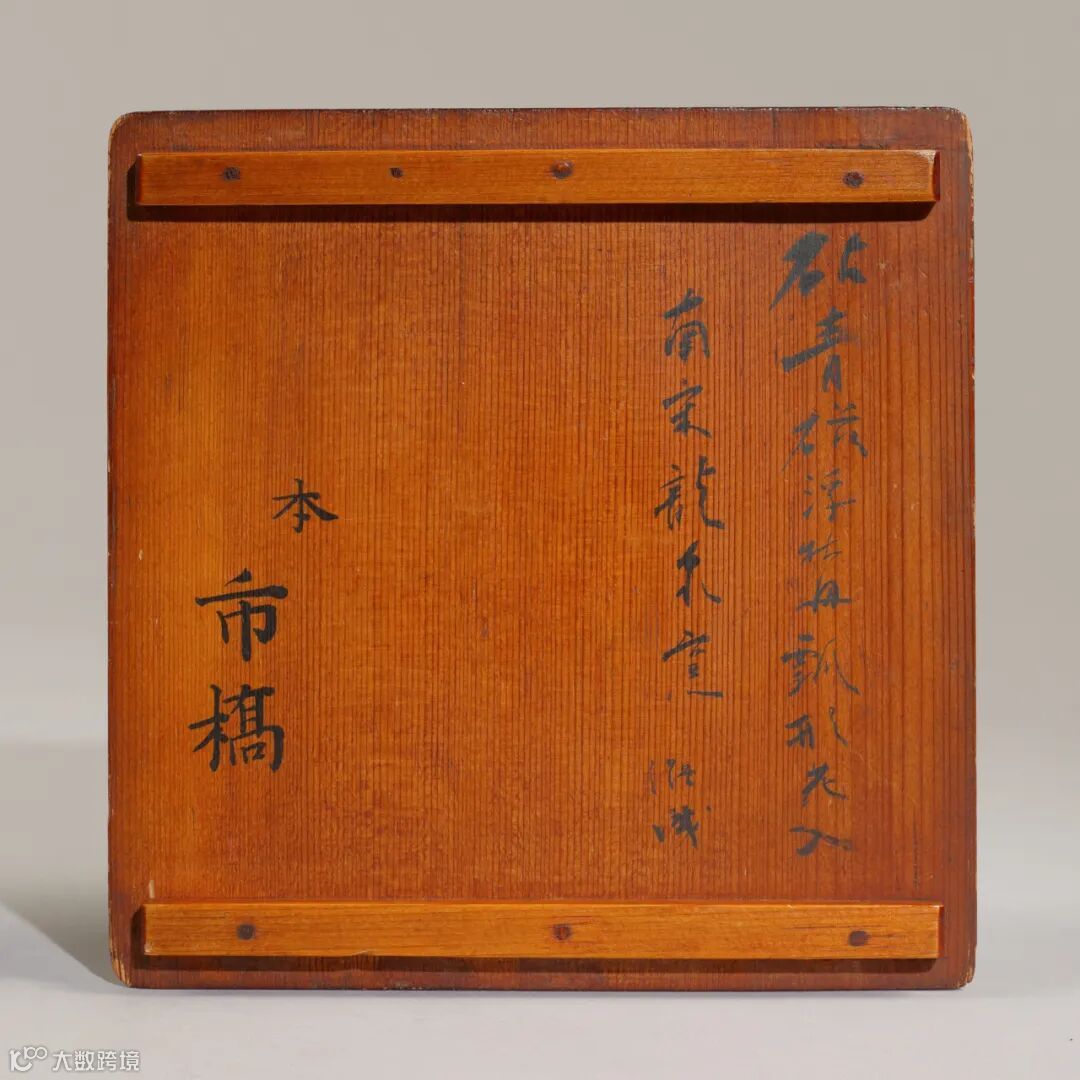 砧青磁浮牡丹瓢形花入
南宋龍泉窯
本
市橋
大数跨境